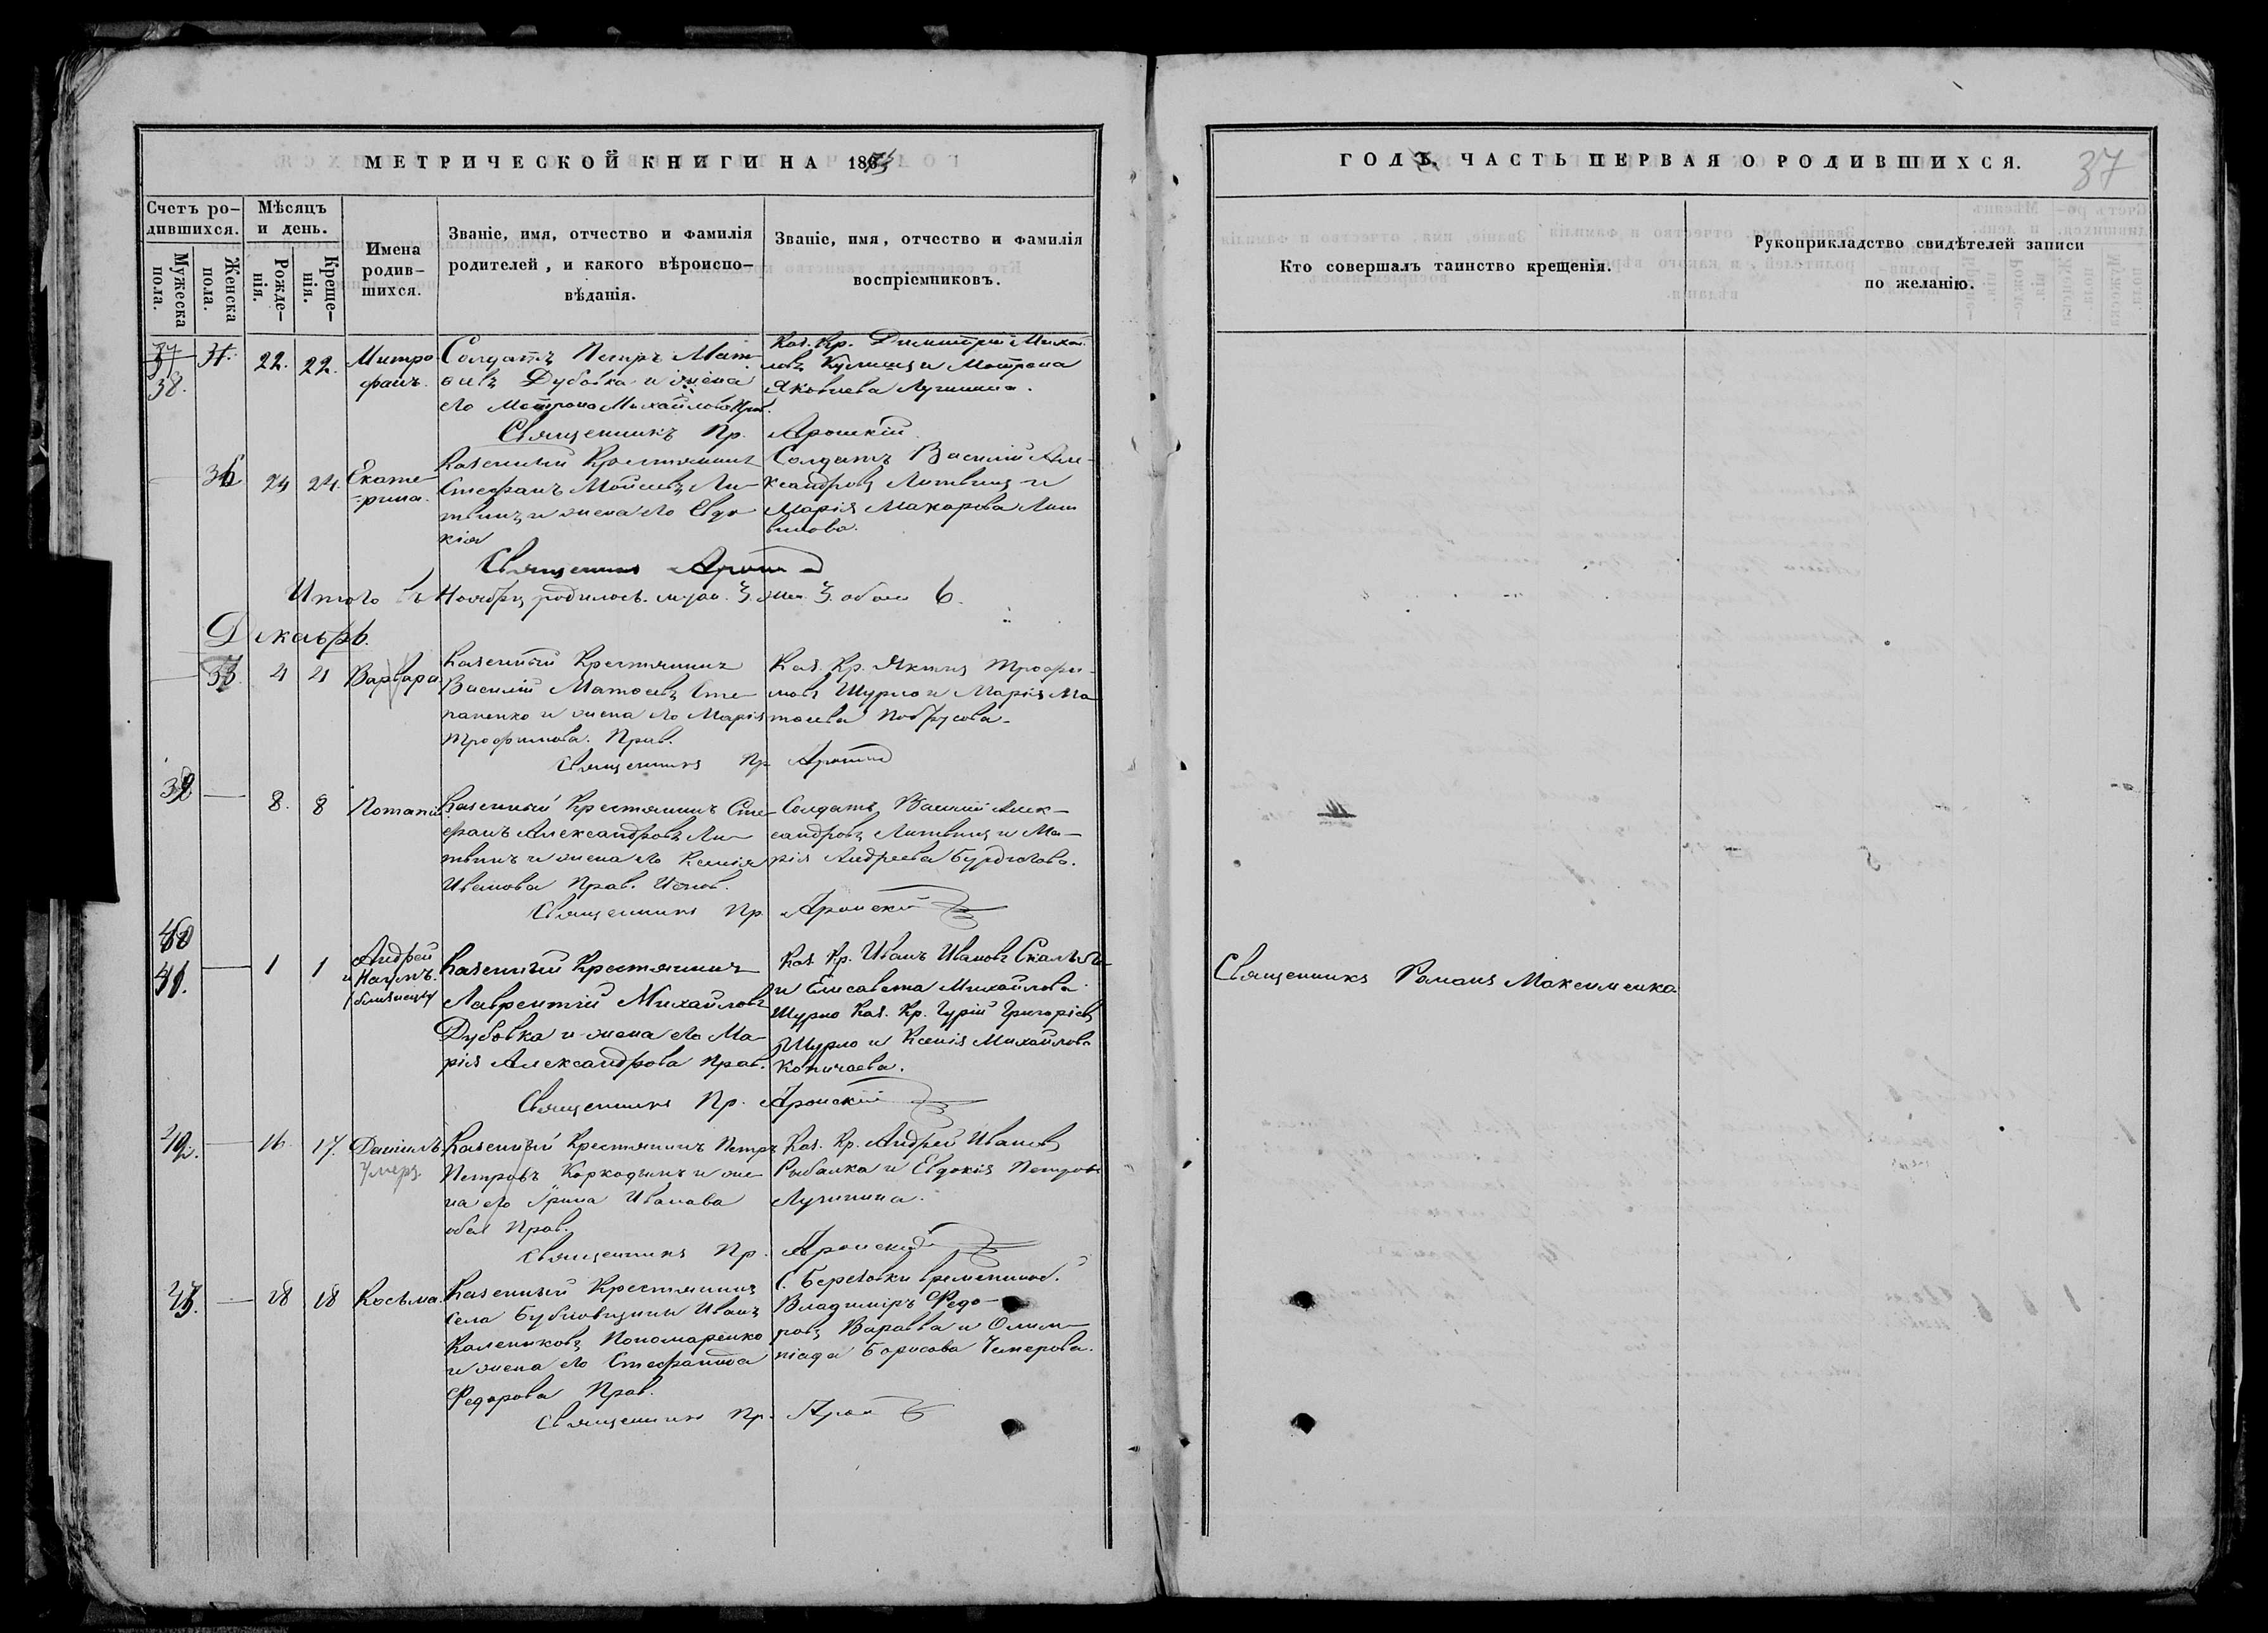 МЕТРИЧЕСКОЙ КНИГИ НА 1873
ГОДЪ. ЧАСТЬ ПЕРВАЯ О РОДИВШИХСЯ.
37
Счетъ ро-
дившихся.
Мужеска
пола.
Женска
пола.
Мѣсяцъ
и день.
Рожде-
нія.
Креще-
нія.
Имена
родив-
шихся.
Званіе, имя, отчество и фамилія
родителей, и какого вѣроиспо-
вѣданія.
Званіе, имя, отчество и фамилія
воспріемниковъ.
Кто совершалъ таинство крещенія.
Рукоприкладство свидѣтелей записи
по желанію.
38.
22. 22.
Митро
фанъ.
Солдатъ Петръ Мат-
ѳивъ Дубовка и жена
его Матрона Михайлова Прав.
Каз. Кр. Димитрій Михай-
ловъ Кулиничъ и Матрона
Яковлева Лучинина.
Священникъ Пр. Яроцкій
36 24 24.
Екате-
рина.
Казенный Крестянинъ
Стефанъ Моисеевъ Ли-
твинъ и жена его Евдо
кія
Солдатъ Василій Але-
ксандровъ Литвинъ и
Марія Макарова Лит
винова.
Священникъ
Итого въ Ноябрѣ родилось. муж. 3. жен. 3. обоего 6.
Декабрь.
4 4 Варвара
Казенный Крестянинъ
Василій Матѳеевъ Сте
паненко и жена его Марія
Трофимова. Прав.
Каз. Кр. Трофи-
мовъ Шурло и Марія Ма
тѳеева
Священникъ Пр
39 — 8. 8 Потапій
Казенный Крестянинъ Сте
фанъ Александровъ Ли-
твинъ и жена его Ксенія
Иванова Прав. Испов.
Солдатъ Василій Алек-
сандровъ Литвинъ и Ма-
рія Андреева Бурдюгова.
Священникъ Пр Яроцкій
40
41. — 1 1
Андрей
и Наумъ.
близнецы
Казенный Крестянинъ
Лаврентій Михайловъ
Дубовка и жена его Ма-
рія Александрова Прав.
Каз. Кр. Иванъ Ивановъ
и Елисавета Михайлова
Шурло Каз. Кр. Гурій Григоріевъ
Шурло и Ксенія Михайлова
Копичаева.
Священникъ Романъ Максименко
Священникъ Пр. Яроцкій
42. — 16. 17. Даніилъ
Умеръ
Казенный Крестянинъ Петръ
Петровъ Коркодымъ и же
на его Ирина Иванова
обоя Прав.
Каз. Кр. Андрей Ивановъ
Рыбалка и Евдокія Петрова
Лучинина.
Священникъ Пр. Яроцкій
43. — 18 18 Косьма
Казенный Крестянинъ
Села Бубновщины Иванъ
Калениковъ Пономаренко
и жена его Стефанида
Федорова Прав.
С. Березовки временнооб.
Владиміръ Федо-
ровъ Варавва и Олим-
піада Борисова Чемерова.
Священникъ Пр.